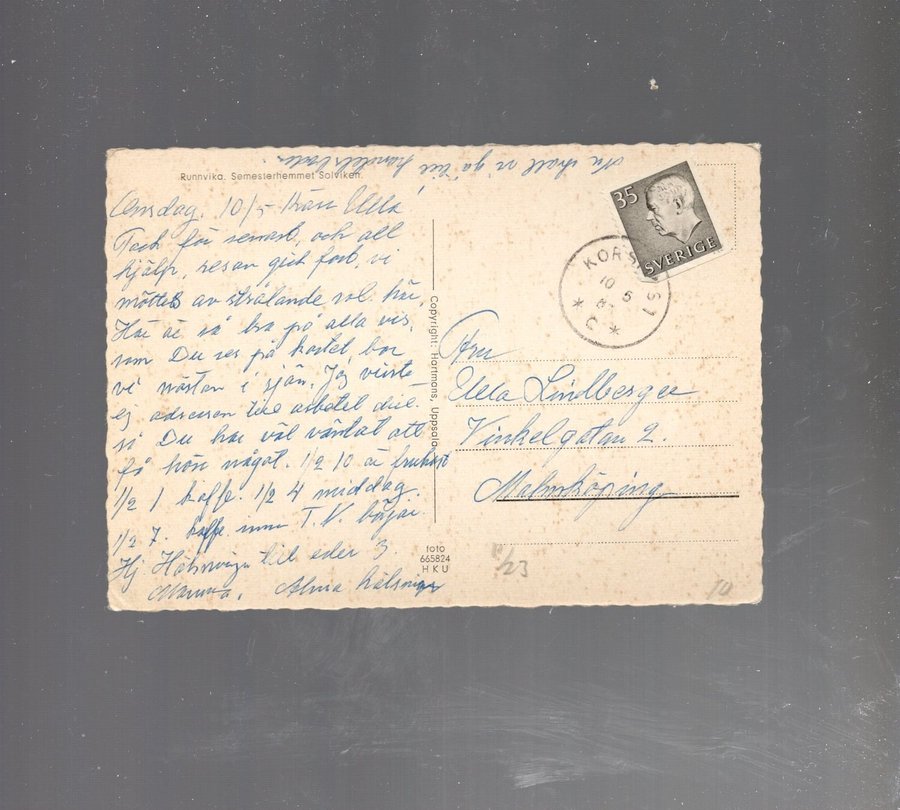 Nu skall vi gå till handelsboden.
Runnvika. Semesterhemmet Solviken.
Onsdag. 10/5 Kära Ulla
Tack för senast, och all
hjälp, resan gick fort, vi
möttes av strålande sol här,
Här är så bra på alla vis,
som Du ser på kortet, bor
vi nästan i sjön. Jag visste
ej adressen till arbetet
så Du har väl väntat att
få höra något. 1/2 10 är frukost
1/2 1 kaffe. 1/2 4 middag.
1/2 7. kaffe innan T.V. börjar.
Hj Hälsningar till eder 3.
Mamma. Alma hälsningar
Copyright: Hartmans, Uppsala
foto
665824
HKU
35
SVERIGE
KORS S1
10 5
* C *
Fru
Ulla Lindberger
Vinkelgatan 2.
Malmköping
11/23
10